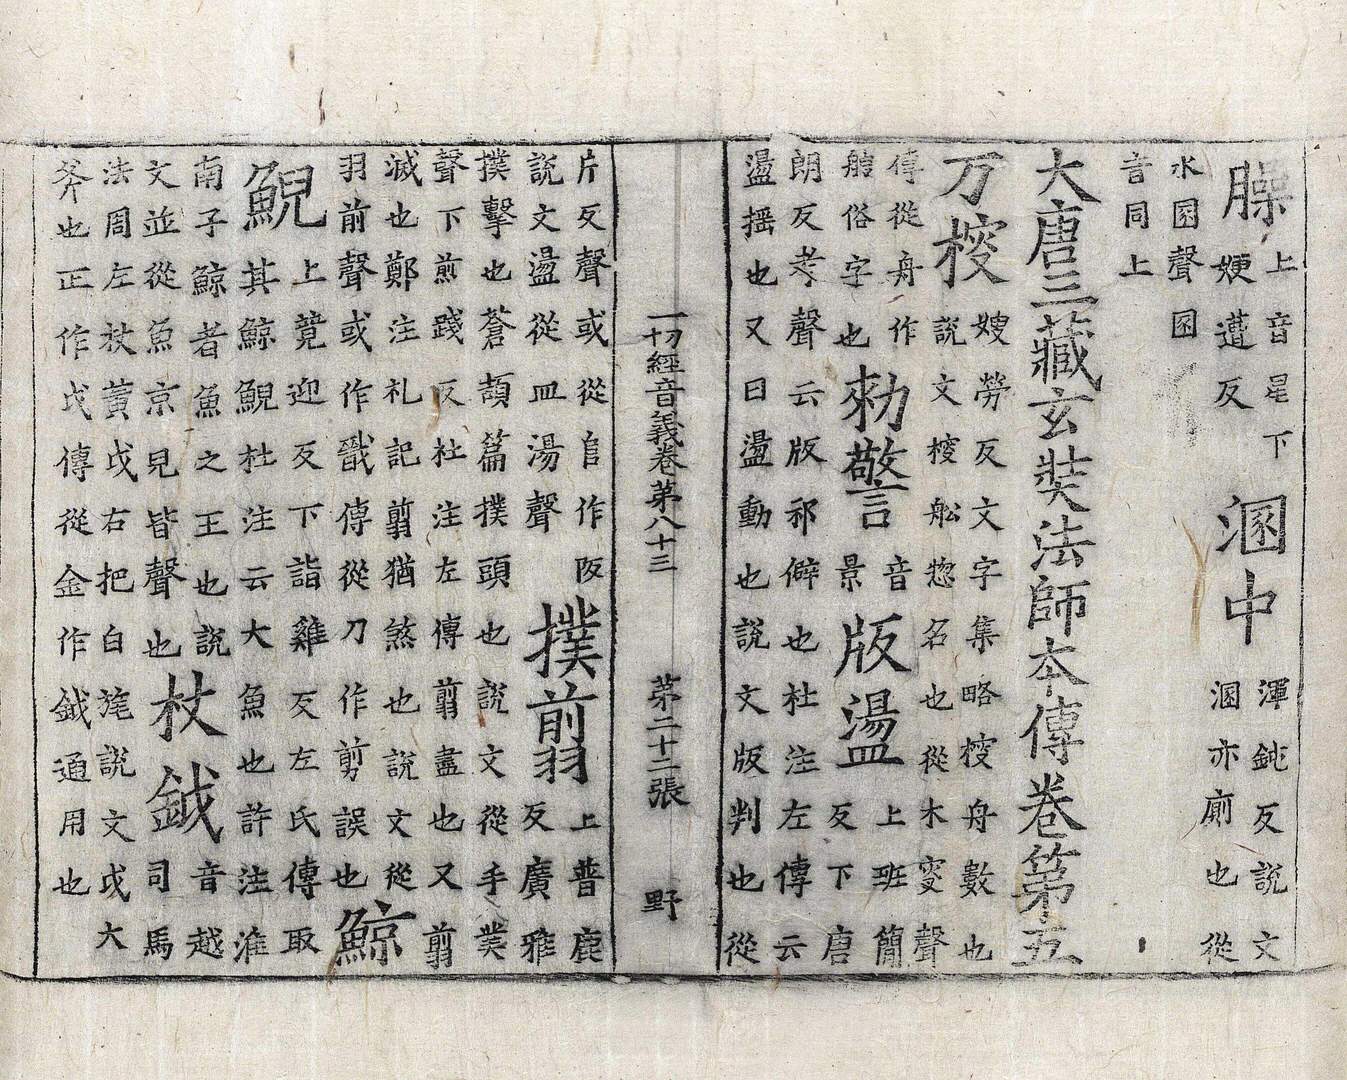 臊上音星下㛐遭反溷中渾鈍反說文溷亦廁也從
水圂聲圂音同上
大唐三藏玄奘法師本傳卷第五
万㮴嫂勞反文字集略㮴舟數也說文㮴船惣名也從木叟聲
傳從舟作艘俗字也勑警音景版盪上班簡反下唐
朗反考聲云版邪僻也杜注左傳云盪揺也又曰盪動也說文版判也從
一切經音義卷第八十三 第二十二張 野
片反聲或從𨸏作阪說文盪從皿湯聲撲翦上普鹿反廣雅
撲擊也蒼頡篇撲頭也說文從手菐聲下煎踐反杜注左傳翦盡也又翦
滅也鄭注礼記翦猶煞也說文從羽前聲或作戩傳從刀作剪誤也鯨
鯢上竟迎反下詣雞反左氏傳取其鯨鯢杜注云大魚也許注淮
南子鯨者魚之王也說文並從魚京見皆聲也杖鉞音越司馬
法周左杖黃戉右把白旄說文戉大斧也正作戉傳從金作鉞通用也